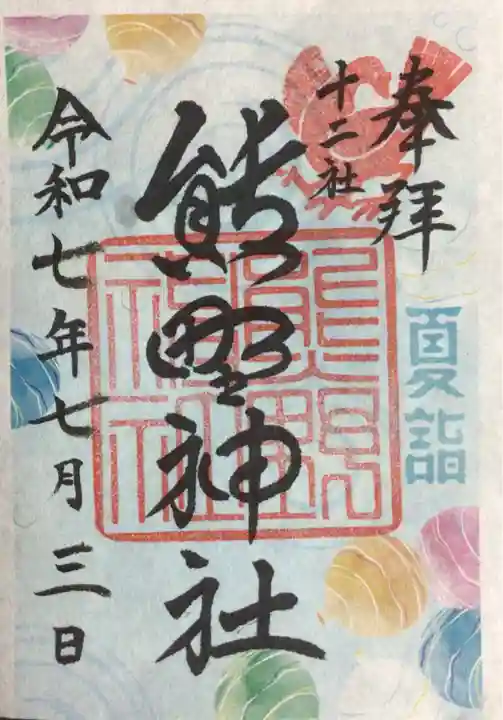 奉拝
夏詣
十二社
熊野神社
熊野神社
令和七年七月三日